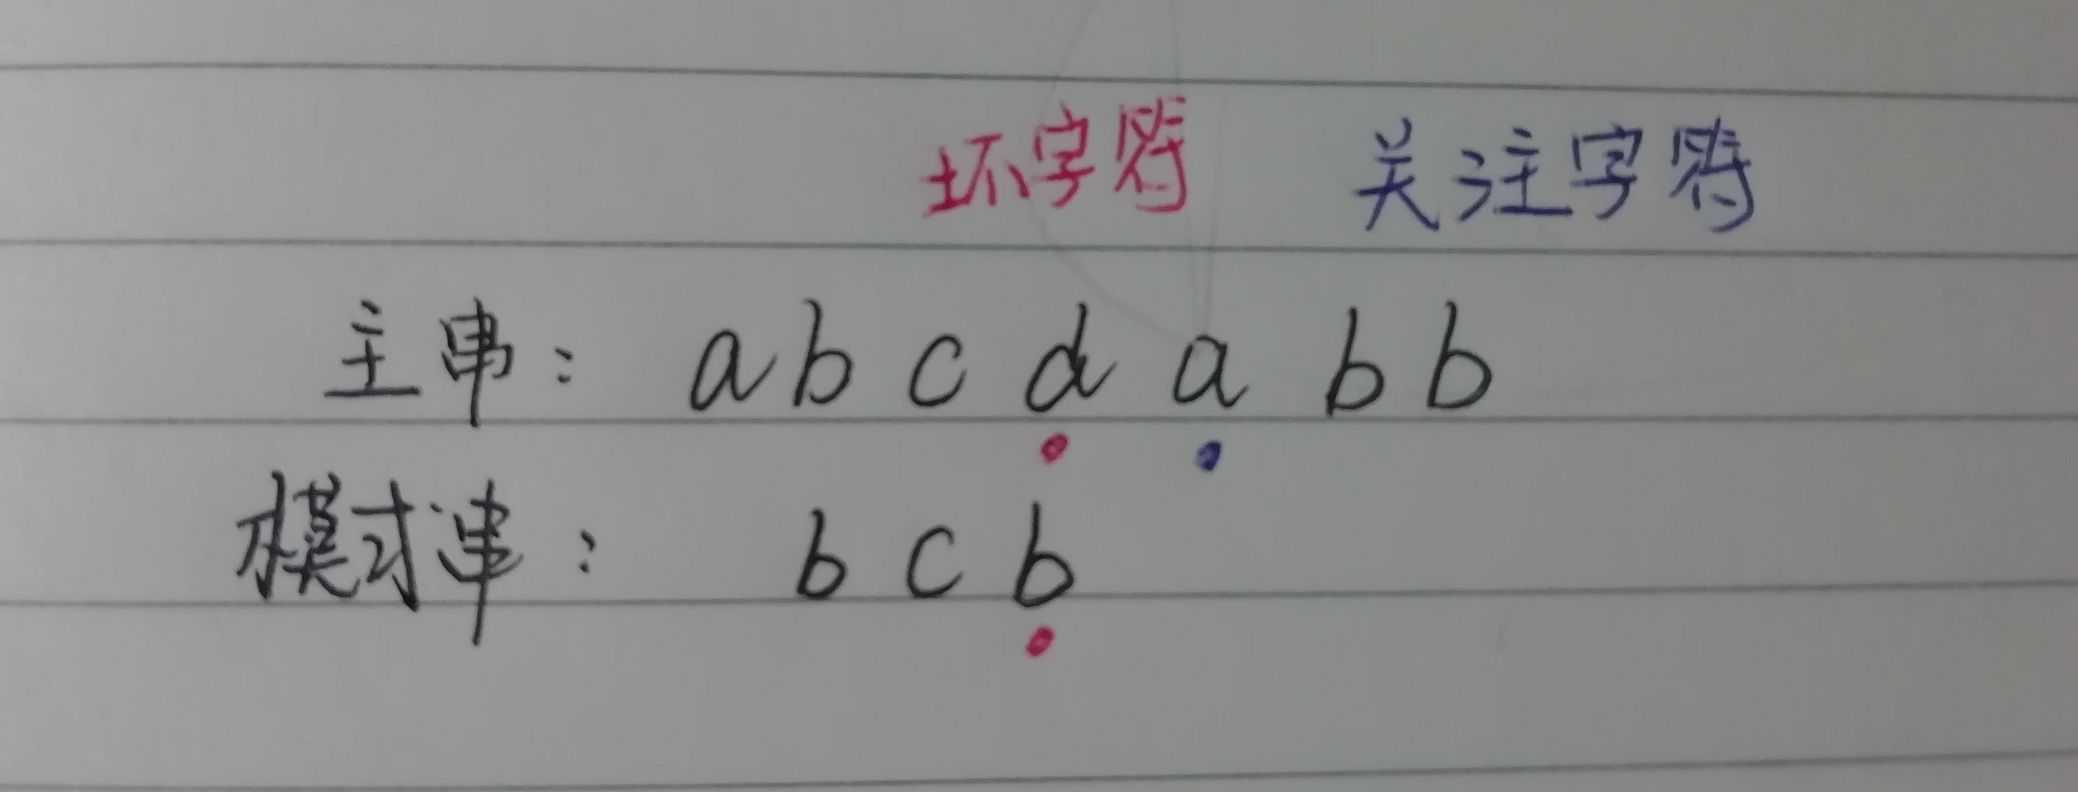 坏字符 关注字符
主串： a b c d a b b
模式串： b c b